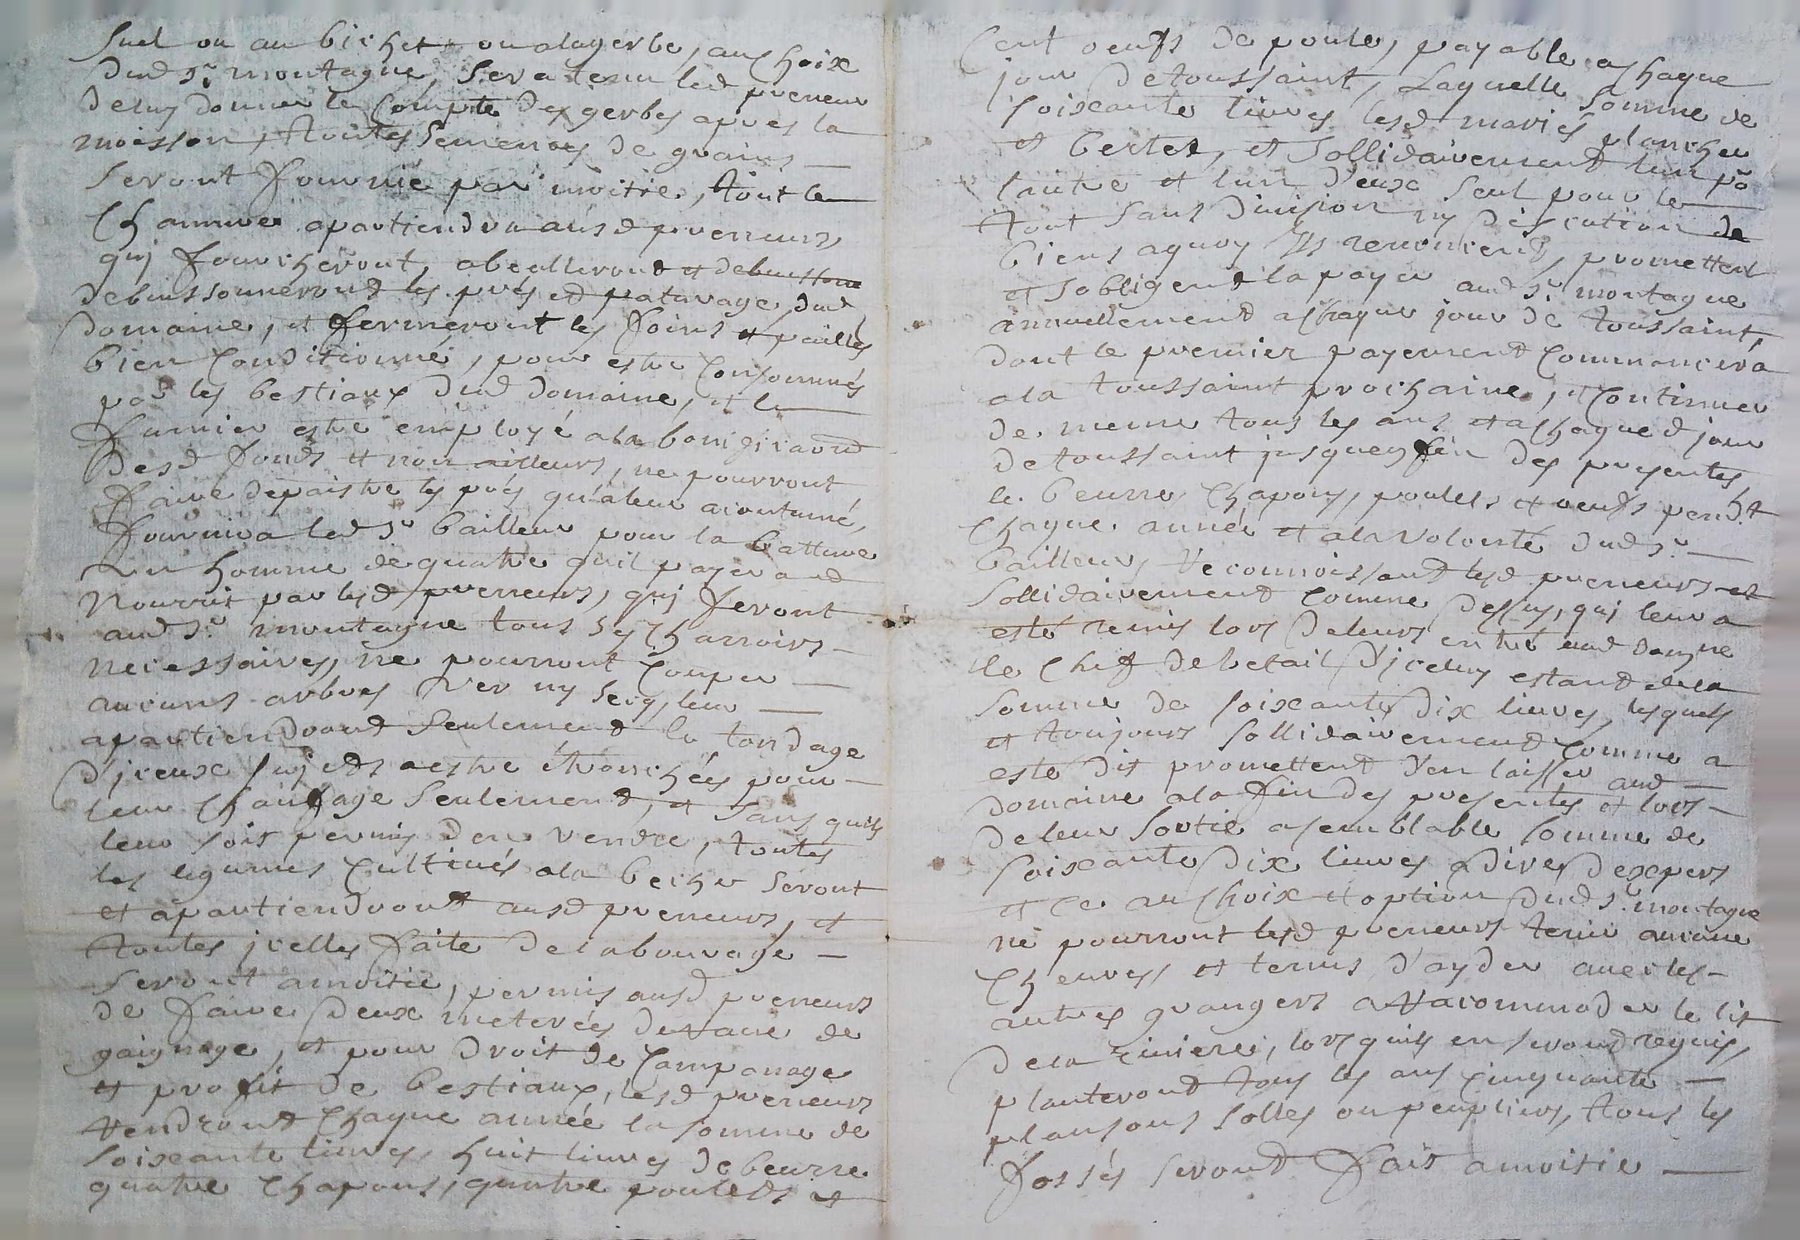 suel ou au bichet ou alagerbe, au choix
dud sr. montagne, sera tenu led preneur
deluy donner le compte des gerbes apres la
moisson, toutes semences de grains
seront fournie par moitié, tout le
chanvre apartiendra ausd preneurs
qui faucheront, abealleront et debuissone
debuissonneront les prés et paturage dud
domaine, et fermeront les foins et pailles
bien conditionné, pour estre consommés
par les bestiaux dud domaine, et le
fumier estre employé ala bonifica͠on
desd fonds et non ailleurs, ne pourront
faire depaistre les prés qu'a leur
fournira led sr bailleur pour la batture
un homme de quatre quil payera et
nourrit par lesd preneurs, qui feront
aud sr. montagne tous ses charroirs
necessaires, ne pourront couper
aucuns arbres ver ny secq, leur
apartiendront seulement la tondage
d'jceux sujets aestre ébranchées pour
leur chaufage seulement, et sans quils
leur soit permis den vendre, toutes
les legumes cultivés ala beche seront
et apartiendront ausd preneurs, et
toutes jcelles faite delabourage
seront amoitié, permis ausd preneurs
de faire deux meterées de rave de
gaignage, et pour droit de camponage
et profit de bestiaux, lesd preneurs
rendront chaque année la somme de
soixante livres, huit livres de beurre
quatre chapons, quatre poulets et
cent oeufs de poule, payable achaque
jour de toussaint, laquelle somme de
soixante livres lesd mariés plancher
et bertet, et sollidairement lun pr
lautre et lun d'eux seul pour le
tout sans division ny discution de
biens aquoy ils renoncent, promettent
et sobligent la payer aud sr. montagne
annuellement achaque jour de toussaint,
dont le premier payement commancera
ala toussaint prochaine, et continuer
de meme tous les ans et achaqued jour
de toussaint jusques fin des presentes
le beurre, chapons, poulets et oeufs pendt
chaque année et ala volonté dud sr.
bailleur, reconnoissant lesd preneurs et
sollidairement comme dessus, qui leur a
esté remis lors deleurs entré aud domne
le chef de betail d'jceluy estant dela
somme de soixante dix livres, lesquels
et toujours sollidairement comme a
esté dit promettent d'en laisser aud
domaine ala fin des presentes et lors
de leur sortie asemblable somme de
soixante dix livres adire d'expers
et ce au choix et option dud sr. montagne
ne pourront lesd preneurs tenir aucune
chevres et tenus d'ayder avec les
autres grangers a racommoder le lit
dela riviere, lors quils en seront requis,
planteront tous les ans cinquante
plansons solles ou peupliers, tous les
fossés seront fait amoitié